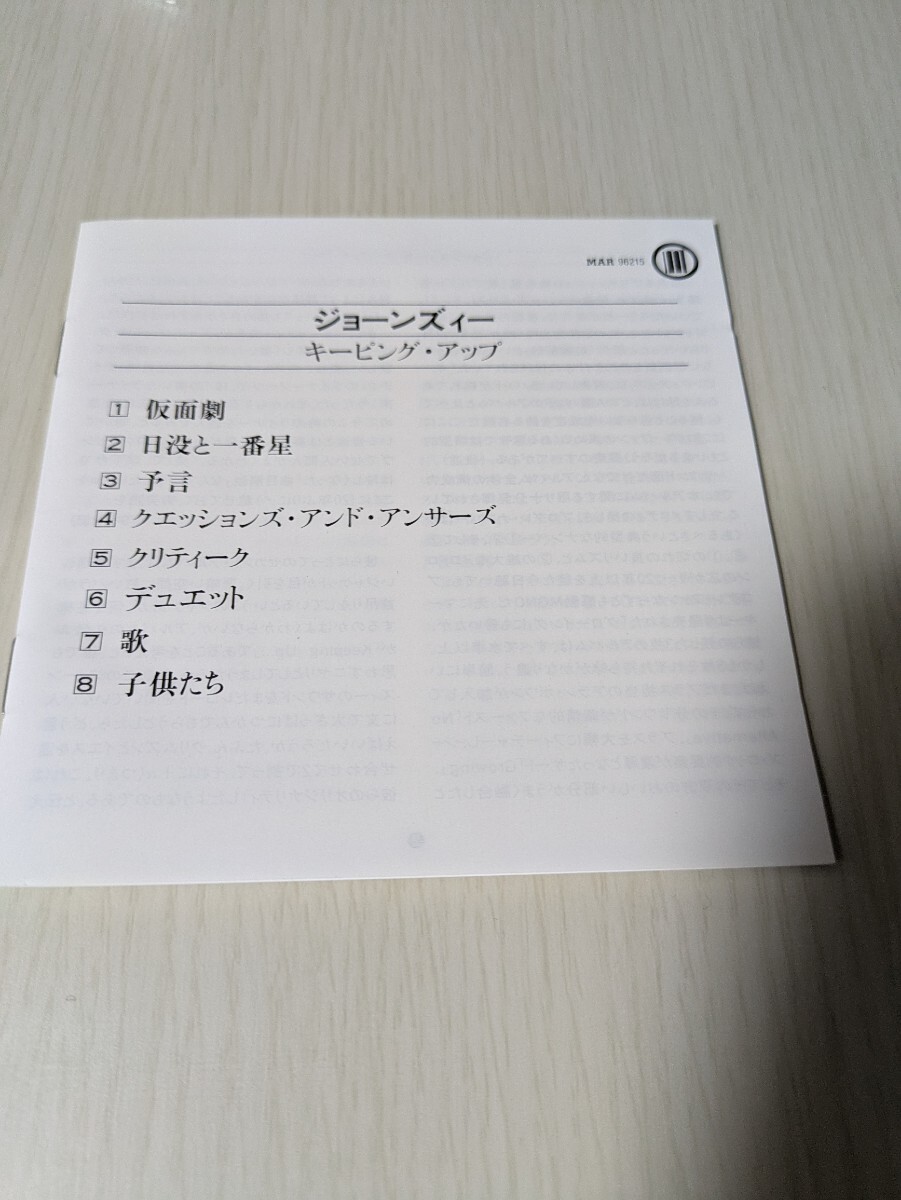 MAR 96215
ジョーンズィー
キーピング・アップ
1 仮面劇
2 日没と一番星
3 予言
4 クエッションズ・アンド・アンサーズ
5 クリティーク
6 デュエット
7 歌
8 子供たち